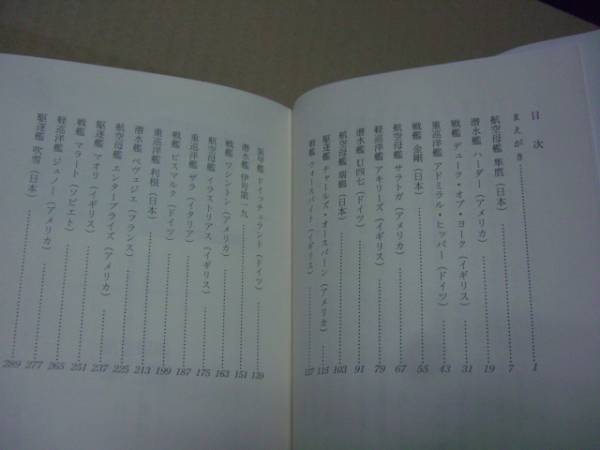 目次
まえがき 1
航空母艦 隼鷹（日本） 7
潜水艦 ハーダー（アメリカ） 19
戦艦 デューク・オブ・ヨーク（イギリス） 31
重巡洋艦 アドミラル・ヒッパー（ドイツ） 43
戦艦 金剛（日本） 55
航空母艦 サラトガ（アメリカ） 67
軽巡洋艦 アキリーズ（イギリス） 79
潜水艦 U四七（ドイツ） 91
航空母艦 瑞鶴（日本） 103
駆逐艦 チャールズ・オースバーン（アメリカ） 115
戦艦 ウォースパイト（イギリス） 127
装甲艦 ドイッチェラント（ドイツ） 139
潜水艦 伊号第一九 151
戦艦 ワシントン（アメリカ） 163
航空母艦 イラストリアス（イギリス） 175
重巡洋艦 ザラ（イタリア） 187
戦艦 ビスマルク（ドイツ） 199
重巡洋艦 利根（日本） 213
潜水艦 ベヴェジェ（フランス） 225
航空母艦 エンタープライズ（アメリカ） 237
駆逐艦 マオリ（イギリス） 251
戦艦 マラート（ソビエト） 265
軽巡洋艦 ジュノー（アメリカ） 277
駆逐艦 吹雪（日本） 289